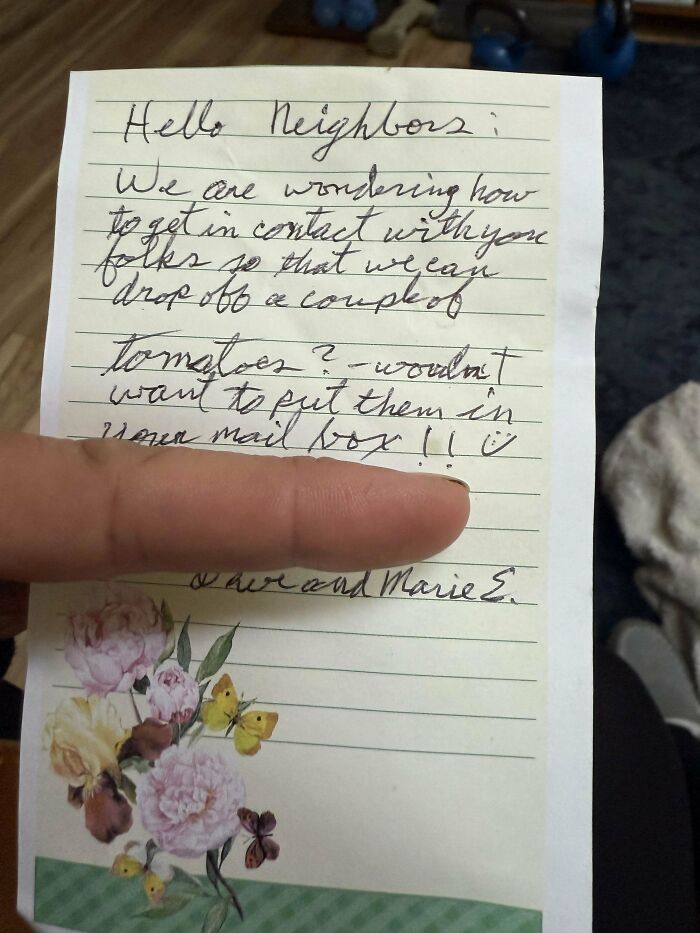 Hello Neighbors:
We are wondering how
to get in contact with you
folks so that we can
drop off a couple of
tomatoes? - wouldn't
want to put them in
your mail box!! ☺
Dave and Marie E.